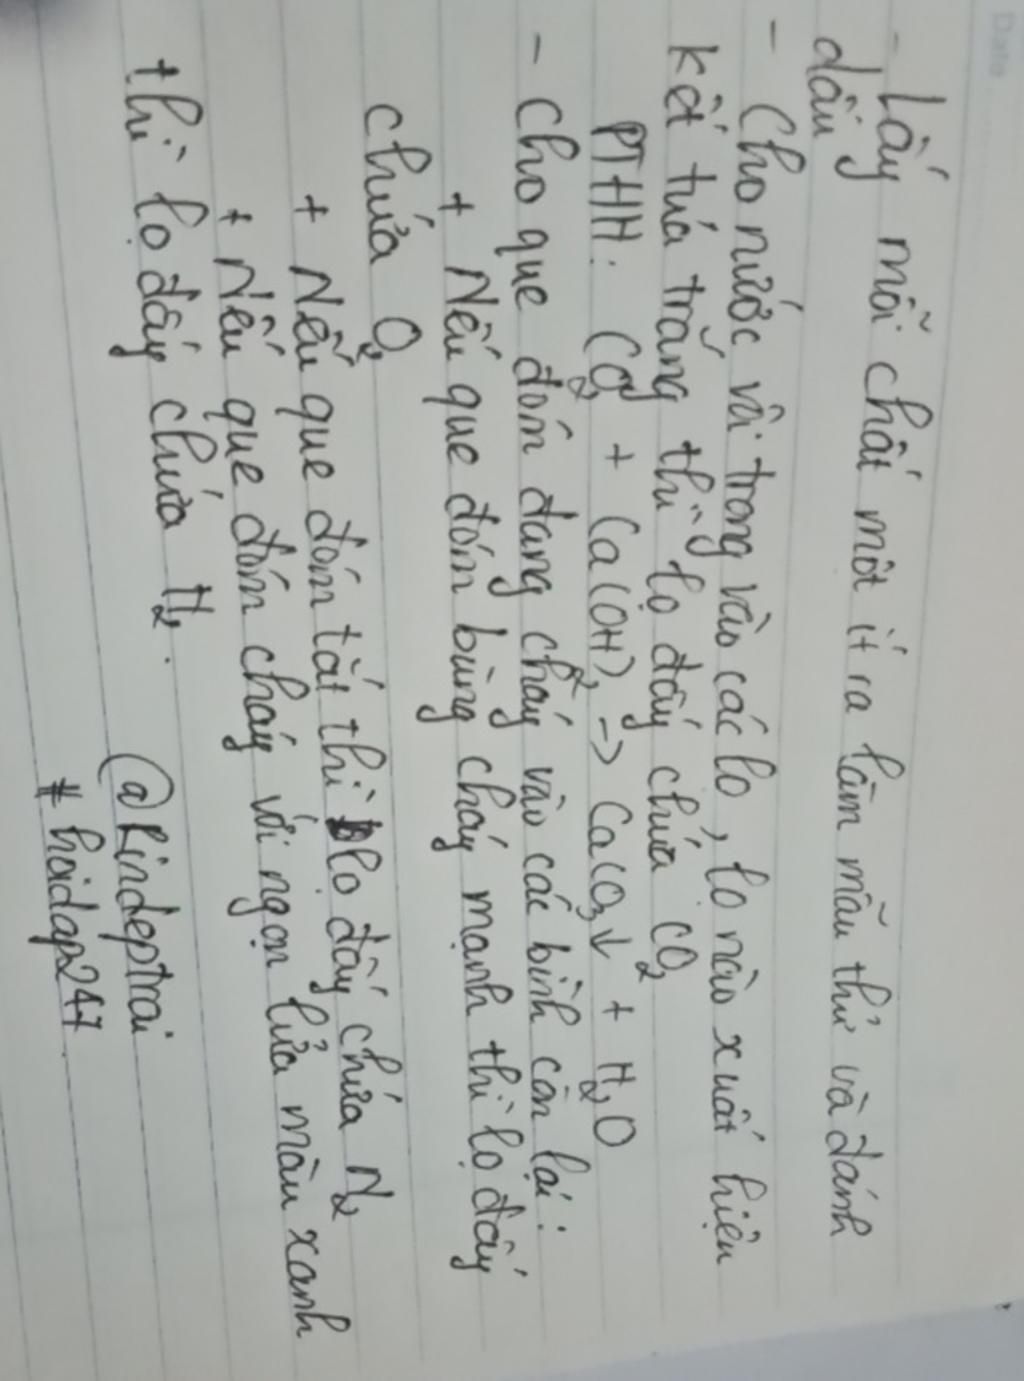 Date
- Lấy mỗi chất một ít ra làm mẫu thử và đánh
dấu
- Cho nước vôi trong vào các lọ, lọ nào xuất hiện
kết tủa trắng thì lọ đấy chứa CO₂
PTHH: CO₂ + Ca(OH)₂ -> CaCO₃↓ + H₂O
- Cho que đóm đang cháy vào các bình còn lại:
+ Nếu que đóm bùng cháy mạnh thì lọ đấy
chứa O₂
+ Nếu que đóm tắt thì lọ đấy chứa N₂
+ Nếu que đóm cháy với ngọn lửa màu xanh
thì lọ đấy chứa H₂.
@Rindeptrai
# hoidap247